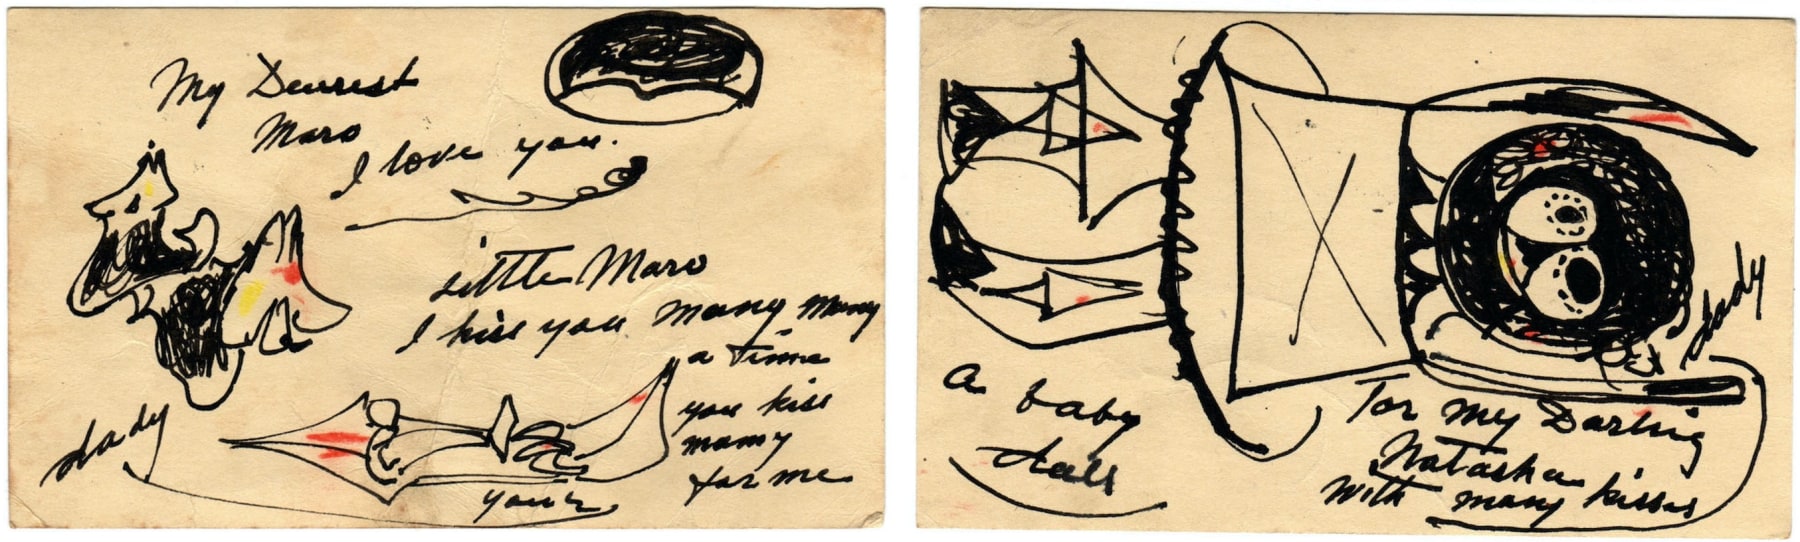 My Dearest
Maro
I love you.
Little Maro
I kiss you many many
a time
you kiss
mamy
for me
your
dady
A baby
doll
dady
For my Darling
Natasha
With many kisses